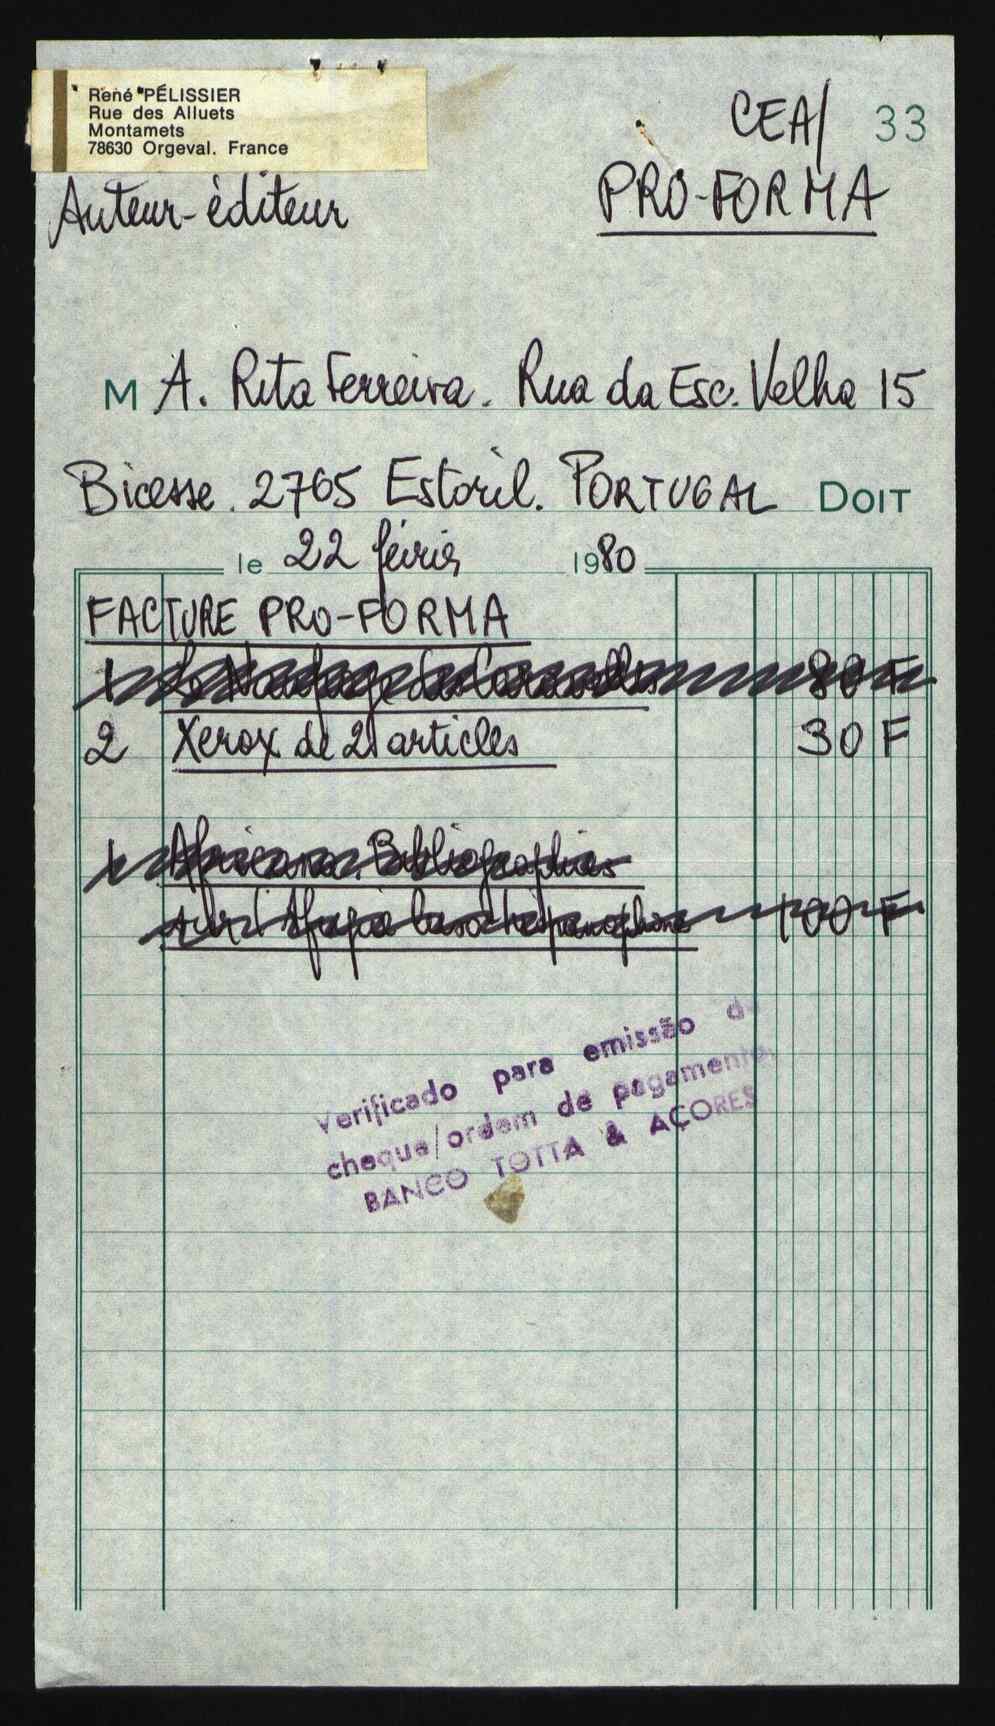 René PÉLISSIER
Rue des Alluets
Montamets
78630 Orgeval. France
CEA/ 33
Auteur-éditeur
PRO-FORMA
M A. Rita Ferreira. Rua da Esc. Velha 15
Bicesse. 2765 Estoril. PORTUGAL DOIT
le 22 février 1980
FACTURE PRO-FORMA
1 Le Naufrage des Caravelles 80 F
2 Xerox de 2 articles 30 F
1 Africana. Bibliographies
100 F
Verificado para emissão de
cheque/ordem de pagamento.
BANCO TOTTA & AÇORES